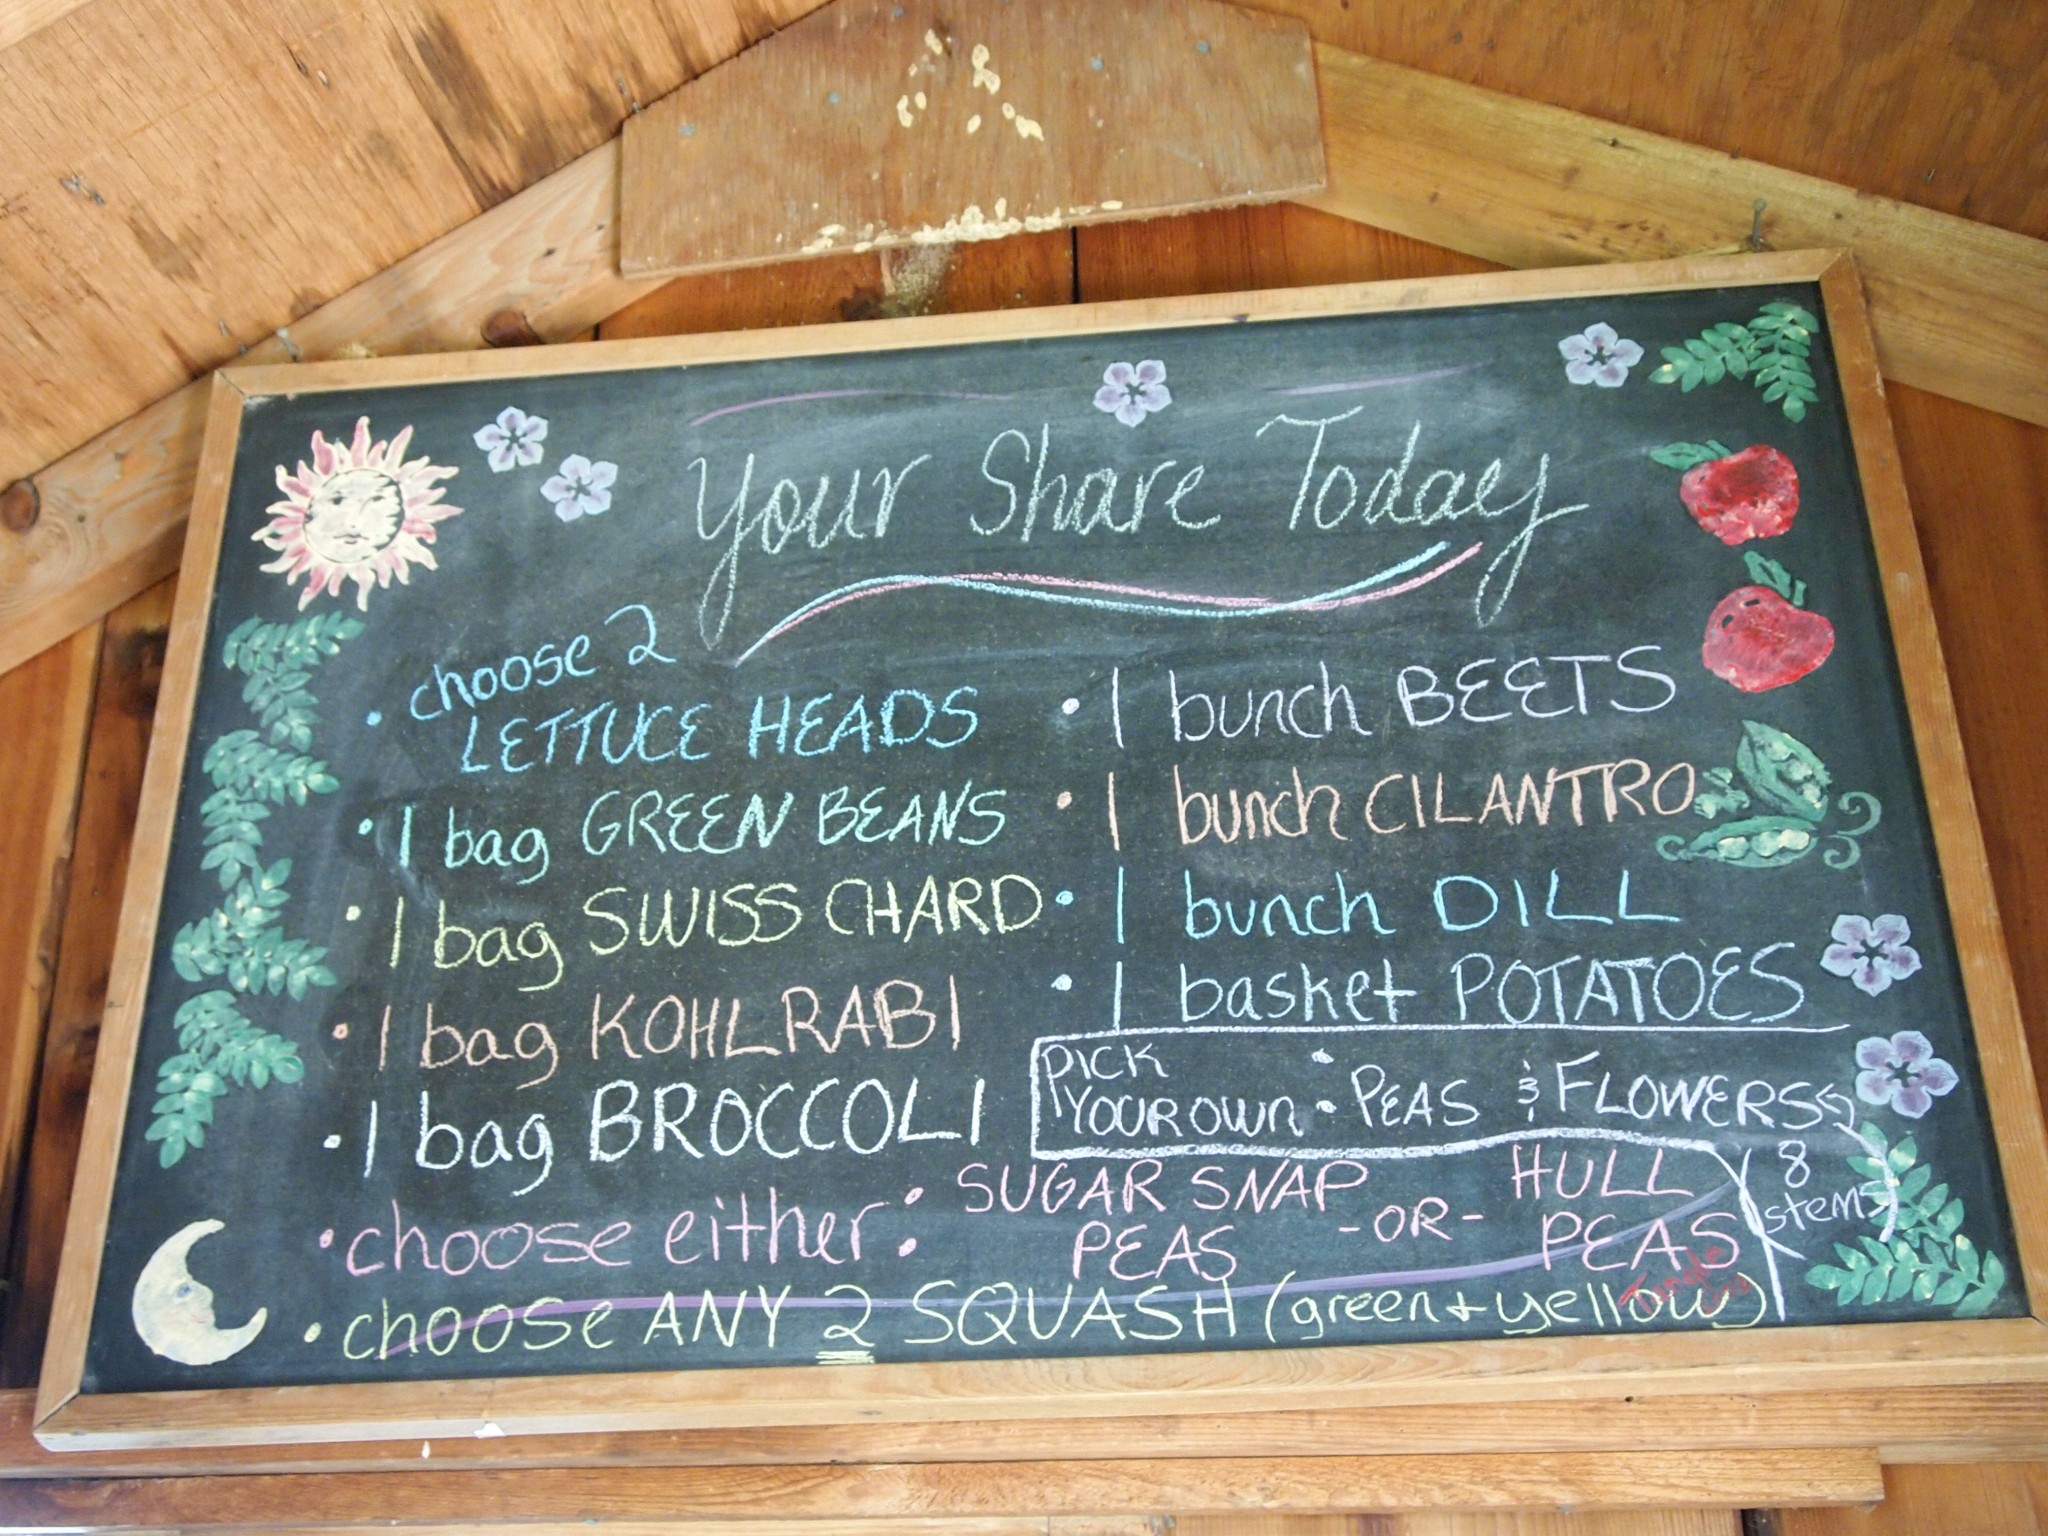 Your Share Today
• choose 2
LETTUCE HEADS
• 1 bag GREEN BEANS
• 1 bag SWISS CHARD
• 1 bag KOHLRABI
• 1 bag BROCCOLI
• 1 bunch BEETS
• 1 bunch CILANTRO
• 1 bunch DILL
• 1 basket POTATOES
PICK
YOUR OWN : PEAS & FLOWERS
8
stems
• choose either: SUGAR SNAP PEAS -OR- HULL PEAS
• choose ANY 2 SQUASH (green + yellow)